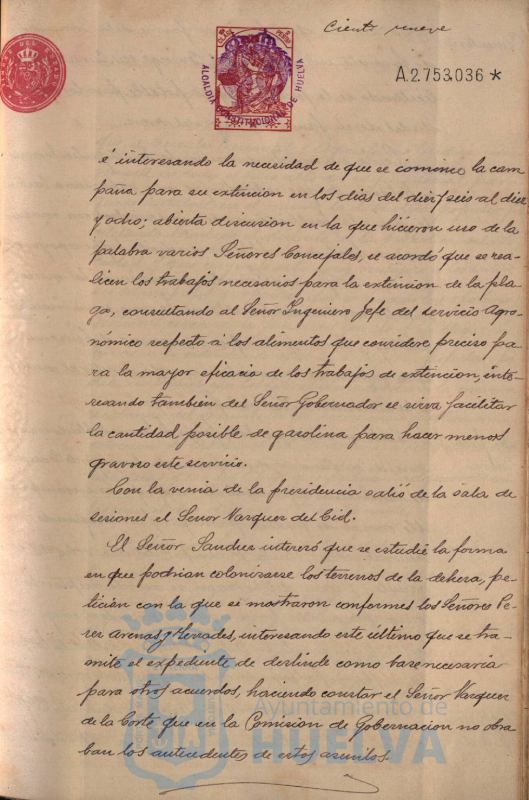 Ciento nueve
A.2.753.036 *
ALCALDIA CONSTITUCIONAL DE HUELVA
é interesando la necesidad de que se comience la cam
paña para su extincion en los dias del diez y seis al diez
y ocho; abierta discusion en la que hicieron uso de la
palabra varios Señores Concejales, se acordó que se rea-
licen los trabajos necesarios para la extincion de la pla-
ga, consultando al Señor Ingeniero Jefe del servicio Agro-
nómico respecto á los alimentos que considere preciso pa
ra la mayor eficacia de los trabajos de extincion, inte-
resando tambien del Señor Gobernador se sirva facilitar
la cantidad posible de gasolina para hacer menos
gravoso este servicio.
Con la venia de la presidencia salió de la sala de
sesiones el Señor Vazquez del Cid.
El Señor Sanchez interesó que se estudie la forma
en que podrian colonizarse los terrenos de la dehesa, pe-
ticion con la que se mostraron conformes los Señores Pe-
rez arenas y Terrades, interesando este último que se tra-
mite el expediente de deslinde como base necesaria
para otros acuerdos, haciendo constar el Señor Vazquez
de la Corte que en la Comision de Gobernacion no obra
ban los antecedentes de estos asuntos.
Ayuntamiento de
HUELVA